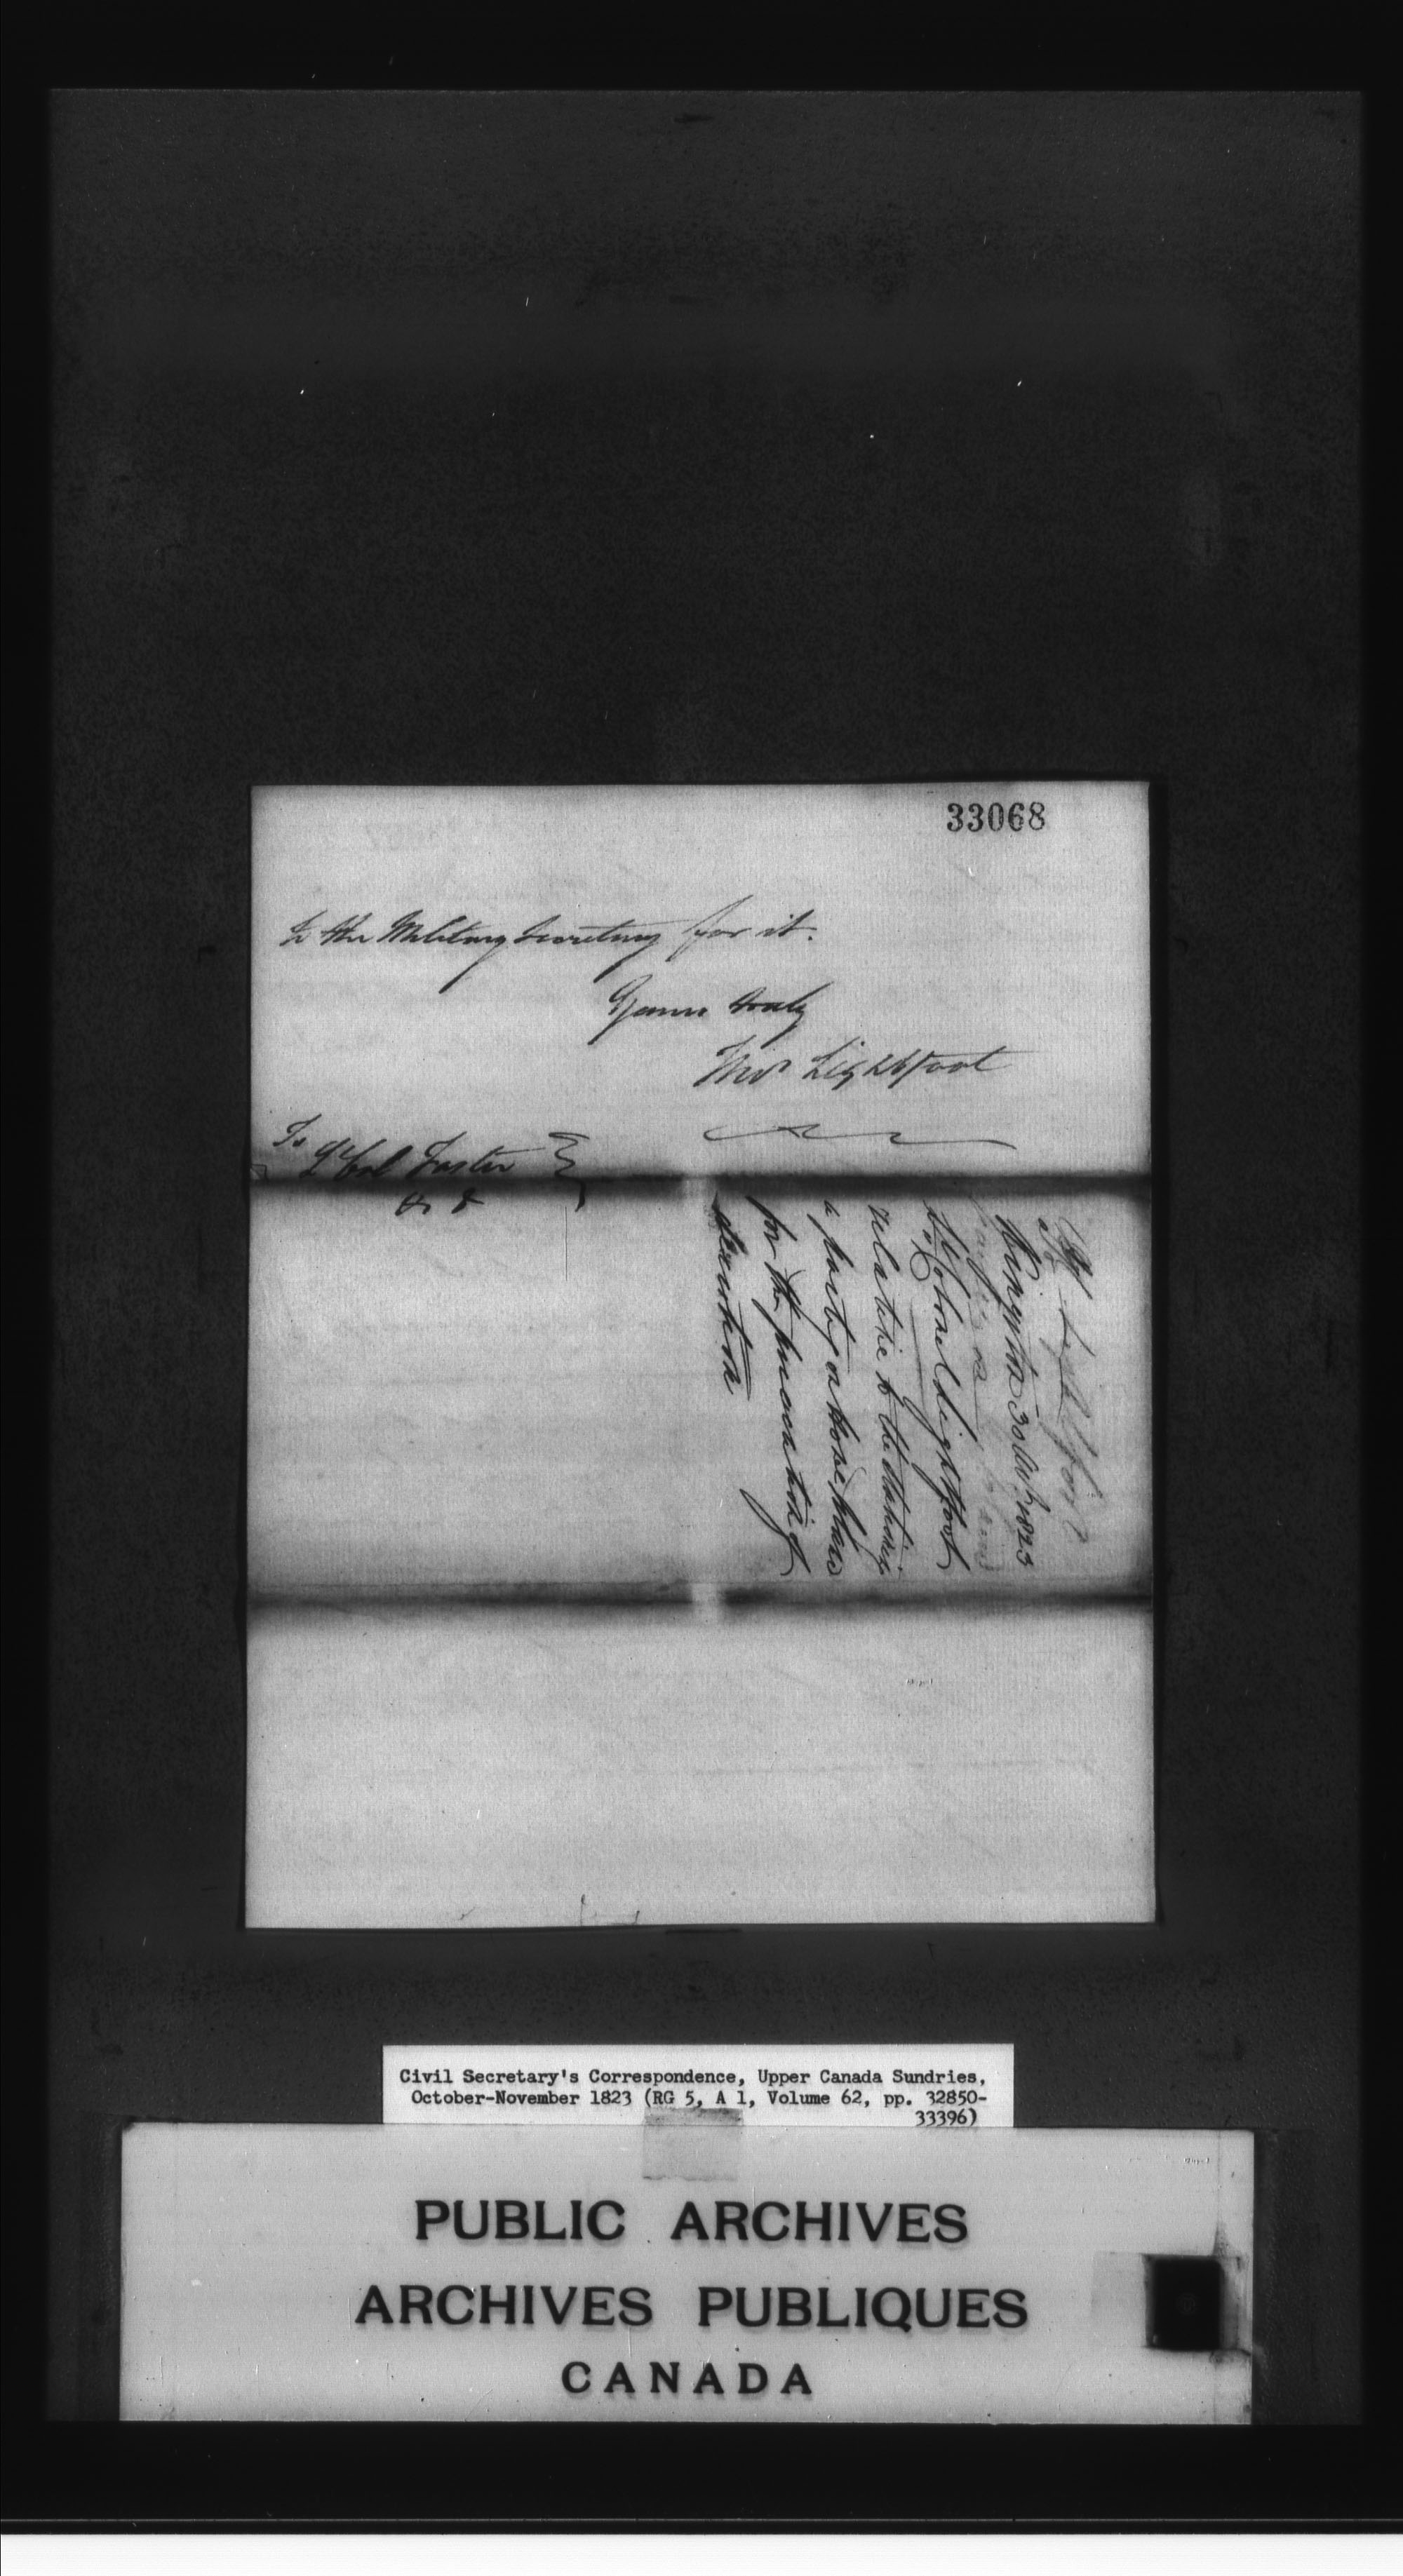 33068
to the Military Secretary for it.
Yours truly
Thos Lightfoot
To
Lt Col Foster
&c &
Kingston 30 Octr 1823
Lt Colonel Lightfoot
relative to the stationing
a party on Horse Island
for the prevention of
desertion
Civil Secretary's Correspondence, Upper Canada Sundries,
October-November 1823 (RG 5, A 1, Volume 62, pp. 32850-
33396)
PUBLIC ARCHIVES
ARCHIVES PUBLIQUES
CANADA